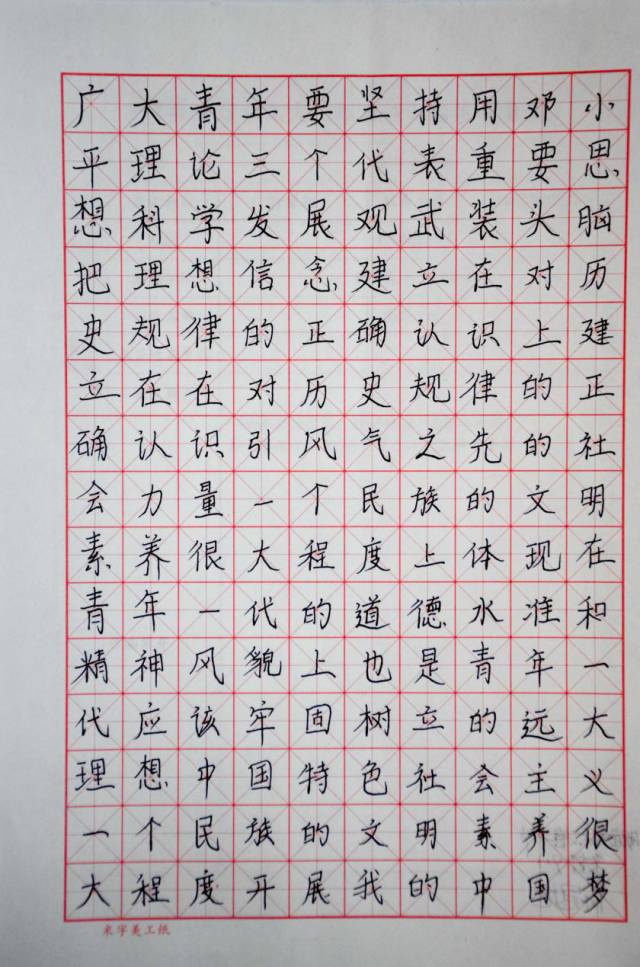 广大青年要坚持用邓小
平理论三个代表重要思
想科学发展观武装头脑
把理想信念建立在对历
史规律的正确认识上建
立在在对历史规律的正
确认识引风气之先的社
会力量一个民族的文明
素养很大程度上体现在
青年一代的道德水准和
精神风貌上也是青年一
代应该牢固树立的远大
理想中国特色社会主义
一个民族的文明素养很
大程度开展我的中国梦
米字美工纸